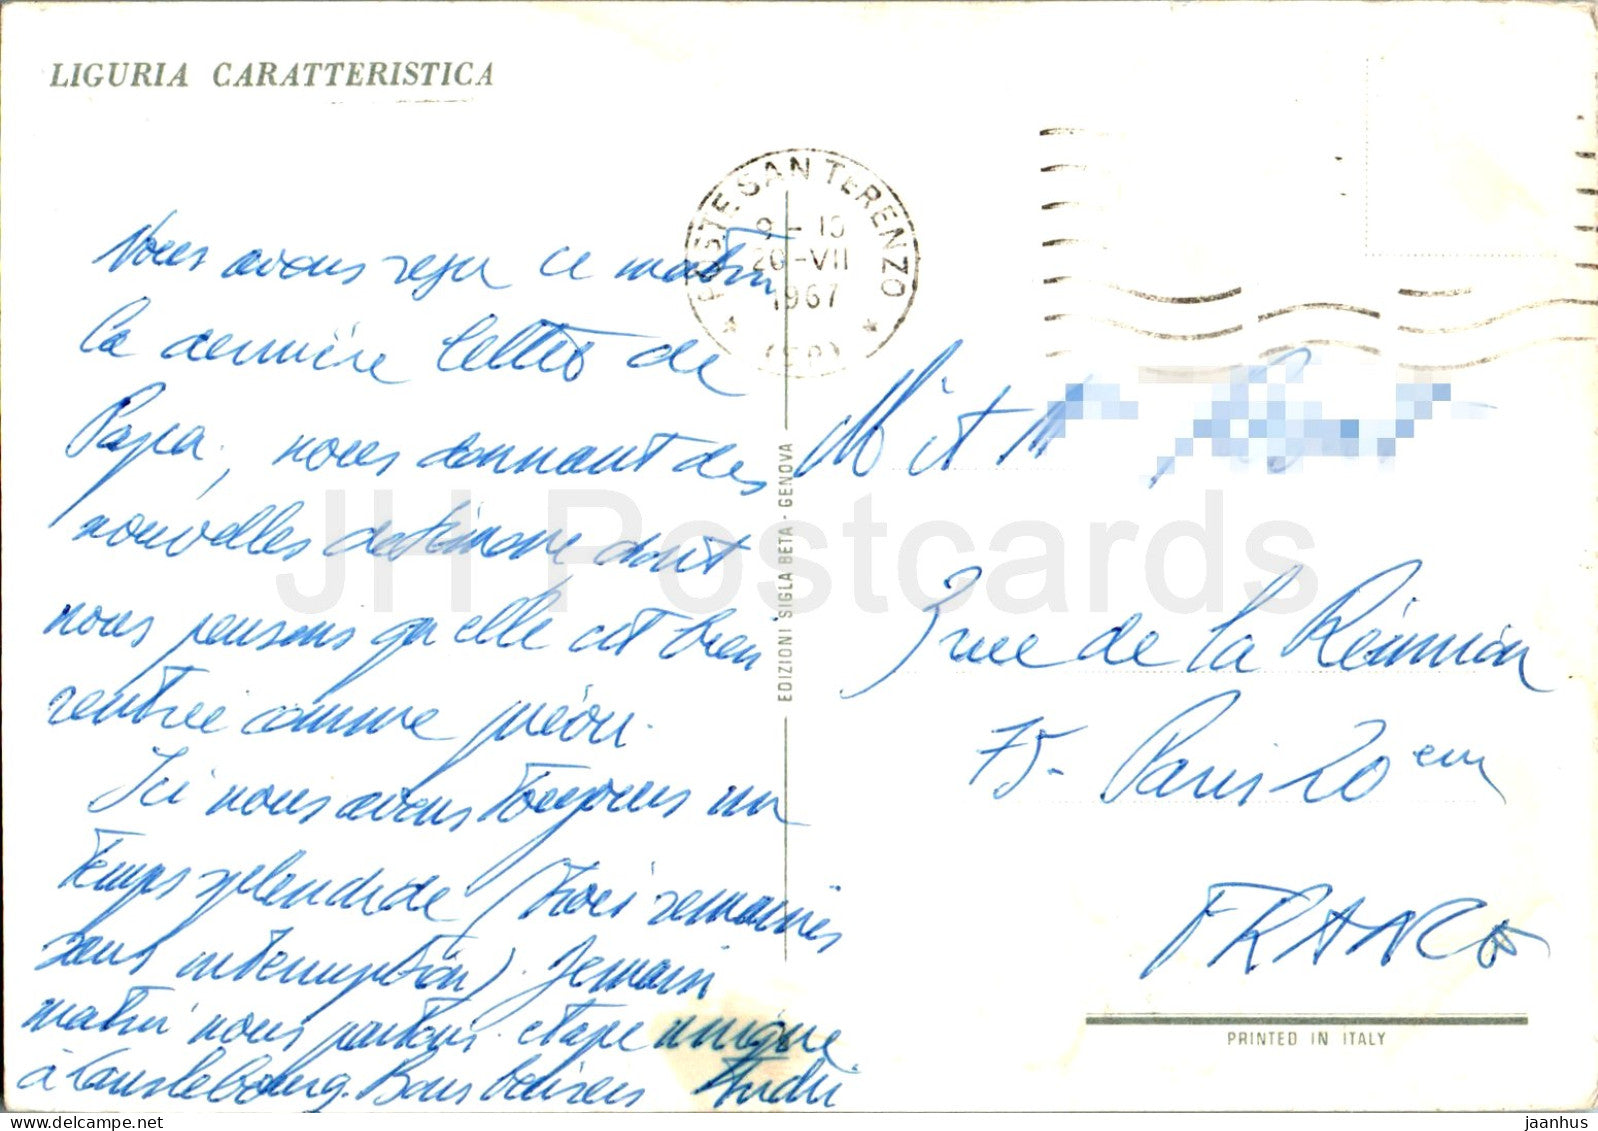 LIGURIA CARATTERISTICA
POSTE SAN TERENZO
9 - 19
20 - VII
1967
(SP)
Nous avons reçu ce matin
la dernière lettre de
Papa, nous donnant des
nouvelles de Simone dont
nous pensons qu'elle est bien
rentrée comme prévu.
Ici nous avons toujours un
temps splendide (trois semaines
sans interruption). Demain
matin nous partons étape unique
à Lanslebourg. Bons baisers André
EDIZIONI SIGLA BETA - GENOVA
M et M
3 rue de la Réunion
75 - Paris 20 em
FRANCE
PRINTED IN ITALY
JH Postcards
jaanhus @ delcampe.net